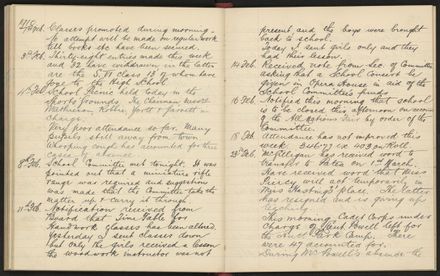 1915
1st Feb. Classes promoted during morning.
No attempt will be made on regular work
till books etc have been secured.
3rd Feb. Thirty-eight entries made this week
and 32 have withdrawn. In the latter
are the S. VI class 13 of whom have
gone to the High School.
School Picnic held today in the
Sports Grounds. The Chairman Messrs
in
charge.
Very poor attendance so far. Many
pupils still away from town.
Whooping cough has accounted for three
cases of absence.
9th Feb. School Committee met tonight. It was
pointed out that a miniature rifle
range was required and suggestion
was made that the Committee take the
matter up & carry it through
11th Feb. Notification received from
Board that Time Table for
Handwork classes has been altered.
Yesterday I sent classes down
but only the girls received a lesson
the woodwork instructor was not
present, and the boys were brought
back to school.
Today I sent girls only and they
had their lesson.
14 Feb. Received note from Sec. of Committee
asking that a School Concert be
given in Opera House in aid of the
School Committee's funds
16 Feb. Notified this morning that school
is to be closed this afternoon on account
of the by order of the
Committee.
18 Feb. Attendance has not improved this
week. 346.97 ex 403 on Roll
23rd Feb. McGilligan has received word to
transfer to on 1st March.
Have received word that Miss
Piercy will act temporarily in
Miss place. The latter
has resigned and is giving up
teaching.
This morning Cadet Corps under
Charge of Lieut Powell left for
the Camp. There
were 47 accounted for.
During Mr Powell's absence the